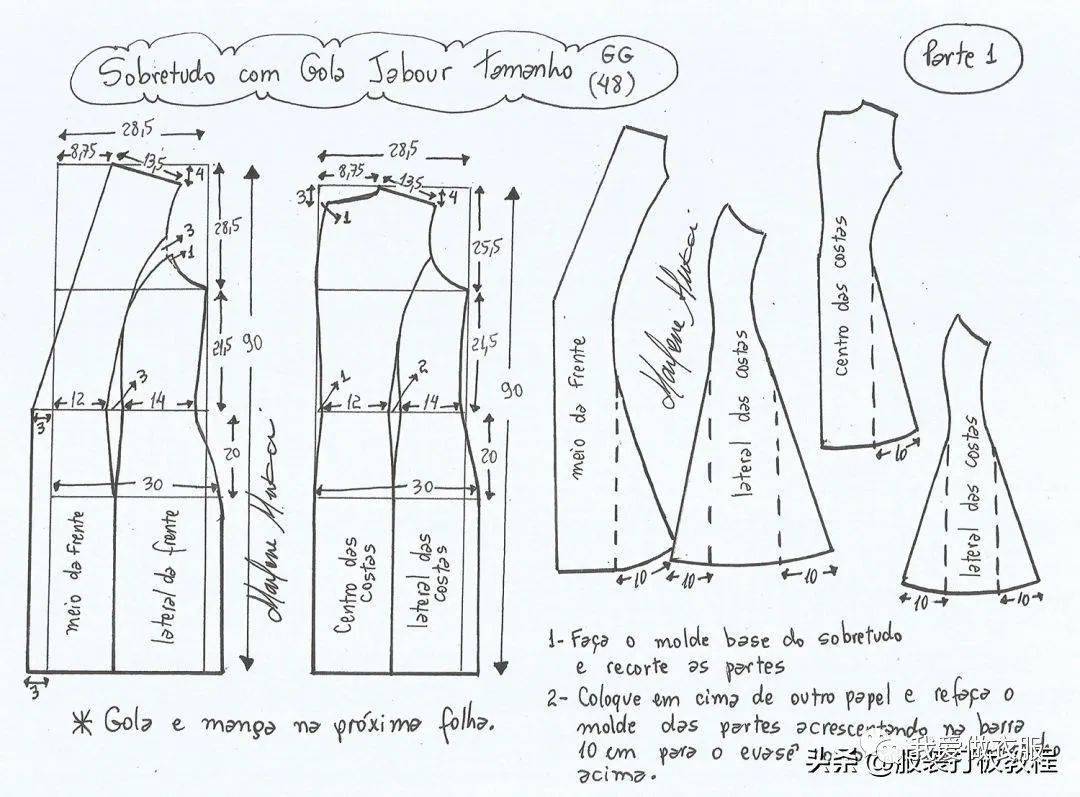 Sobretudo com Gola Jabour Tamanho GG (48)
Parte 1
28,5
8,75
13,5
4
28,5
3
1
21,5
90
3
12
14
3
20
30
meio da frente
lateral da frente
3
Marlene Mukai
28,5
8,75
13,5
3
1
4
25,5
21,5
90
1
2
12
14
20
30
Centro das Costas
lateral das Costas
meio da frente
10
Marlene Mukai
lateral das costas
10
10
centro das costas
10
lateral das costas
10
10
* Gola e manga na próxima folha.
1- Faça o molde base do sobretudo
e recorte as partes
2- Coloque em cima de outro papel e refaça o
molde das partes acrescentando na barra
10 cm para o evasê
acima.
我爱做衣服
头条@服装打板教程